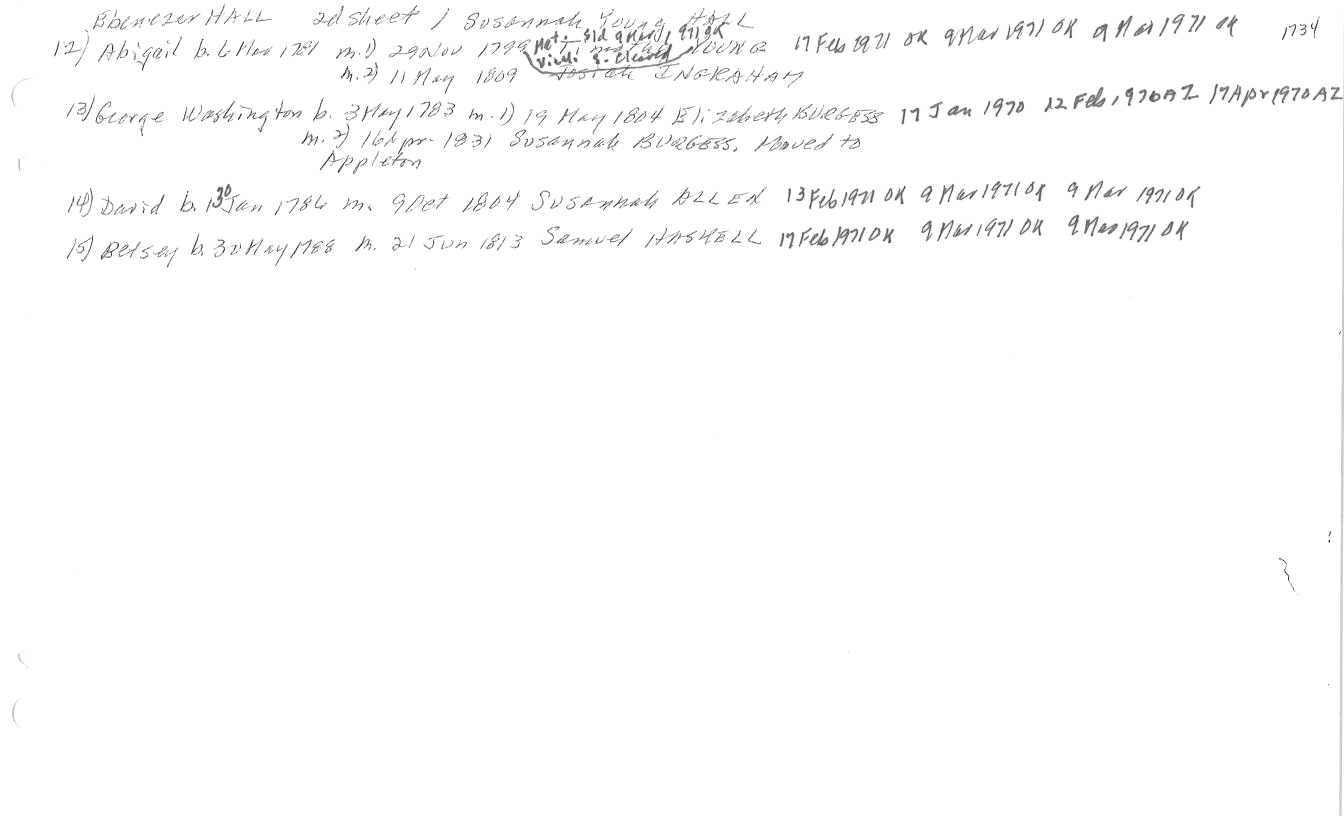 Ebenezer HALL 2d sheet / Susannah Young HALL
12) Abigail b. 6 Mar 1781 m.1) 29 Nov 1799 YOUNG 17 Feb 1971 OK 9 Mar 1971 OK 9 Mar 1971 OK 1734
Sld 9 Mar 1971 OK
S. Cleared
m.2) 11 May 1809 Josiah INGRAHAM
13) George Washington b. 3 May 1783 m.1) 19 May 1804 Elizabeth BURGESS 17 Jan 1970 12 Feb 1970 AZ 17 Apr 1970 AZ
m.2) 16 Apr 1831 Susannah BURGESS. Moved to
Appleton
14) David b. 30 Jan 1786 m. 9 Oct 1804 Susannah ALLEN 13 Feb 1971 OK 9 Mar 1971 OK 9 Mar 1971 OK
15) Betsey b. 30 May 1788 m. 21 Jun 1813 Samuel HASKELL 17 Feb 1971 OK 9 Mar 1971 OK 9 Mar 1971 OK